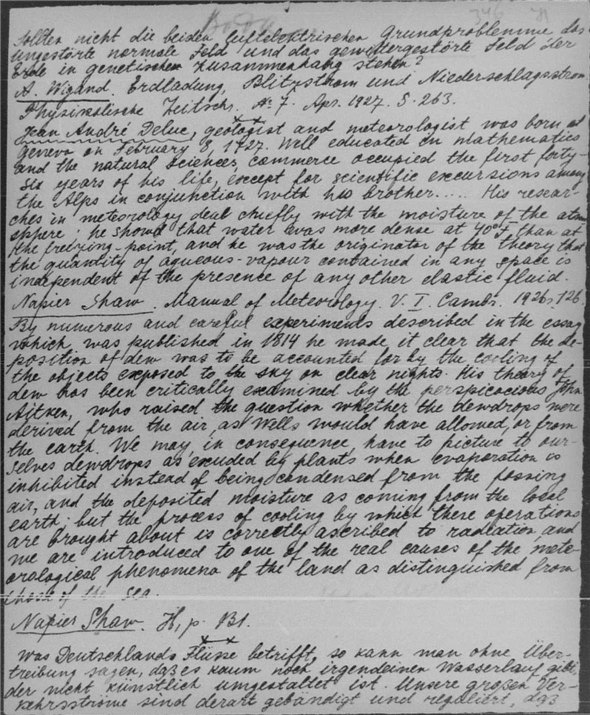 Sollten nicht die beiden luftelektrischen Grundprobleme das
ungestörte normale Feld und das gewittergestörte Feld der
Erde in genetischem Zusammenhang stehen?
A. Wigand. Erdladung, Blitzstrom und Niederschlagsstrom
Physikalische Zeitschr. № 7. Apr. 1927. S. 263.
Jean André Deluc, geologist and meteorologist was born at
Geneva on February 8, 1727. Well educated in mathematics
and the natural sciences, commerce occupied the first forty-
six years of his life, except for scientific excursions among
the Alps in conjunction with his brother..... His resear-
ches in meteorology deal chiefly with the moisture of the atmo
sphere; he showed that water was more dense at 40°F than at
the freezing-point, and he was the originator of the theory that
the quantity of aqueous-vapour contained in any space is
independent of the presence of any other elastic fluid.
Napier Shaw. Manual of Meteorology. V. I. Cambr. 1926, 126
By numerous and careful experiments described in the essay
which was published in 1814 he made it clear that the de-
position of dew was to be accounted for by the cooling of
the objects exposed to the sky on clear nights. His theory of
dew has been critically examined by the perspicacious John
Aitken, who raised the question whether the dewdrops were
derived from the air, as Wells would have allowed, or from
the earth. We may in consequence have to picture to our-
selves dewdrops as exuded by plants when evaporation is
inhibited instead of being condensed from the passing
air, and the deposited moisture as coming from the local
earth; but the process of cooling by which these operations
are brought about is correctly ascribed to radiation, and
we are introduced to one of the real causes of the mete-
orological phenomena of the land as distinguished from
those of the sea.
Napier Shaw. p. 131.
Was Deutschlands Flüsse betrifft, so kann man ohne Über-
treibung sagen, daß es kaum noch irgendeinen Wasserlauf gibt,
der nicht künstlich umgestaltet ist. Unsere großen Ver-
kehrsströme sind derart gebändigt und reguliert, daß